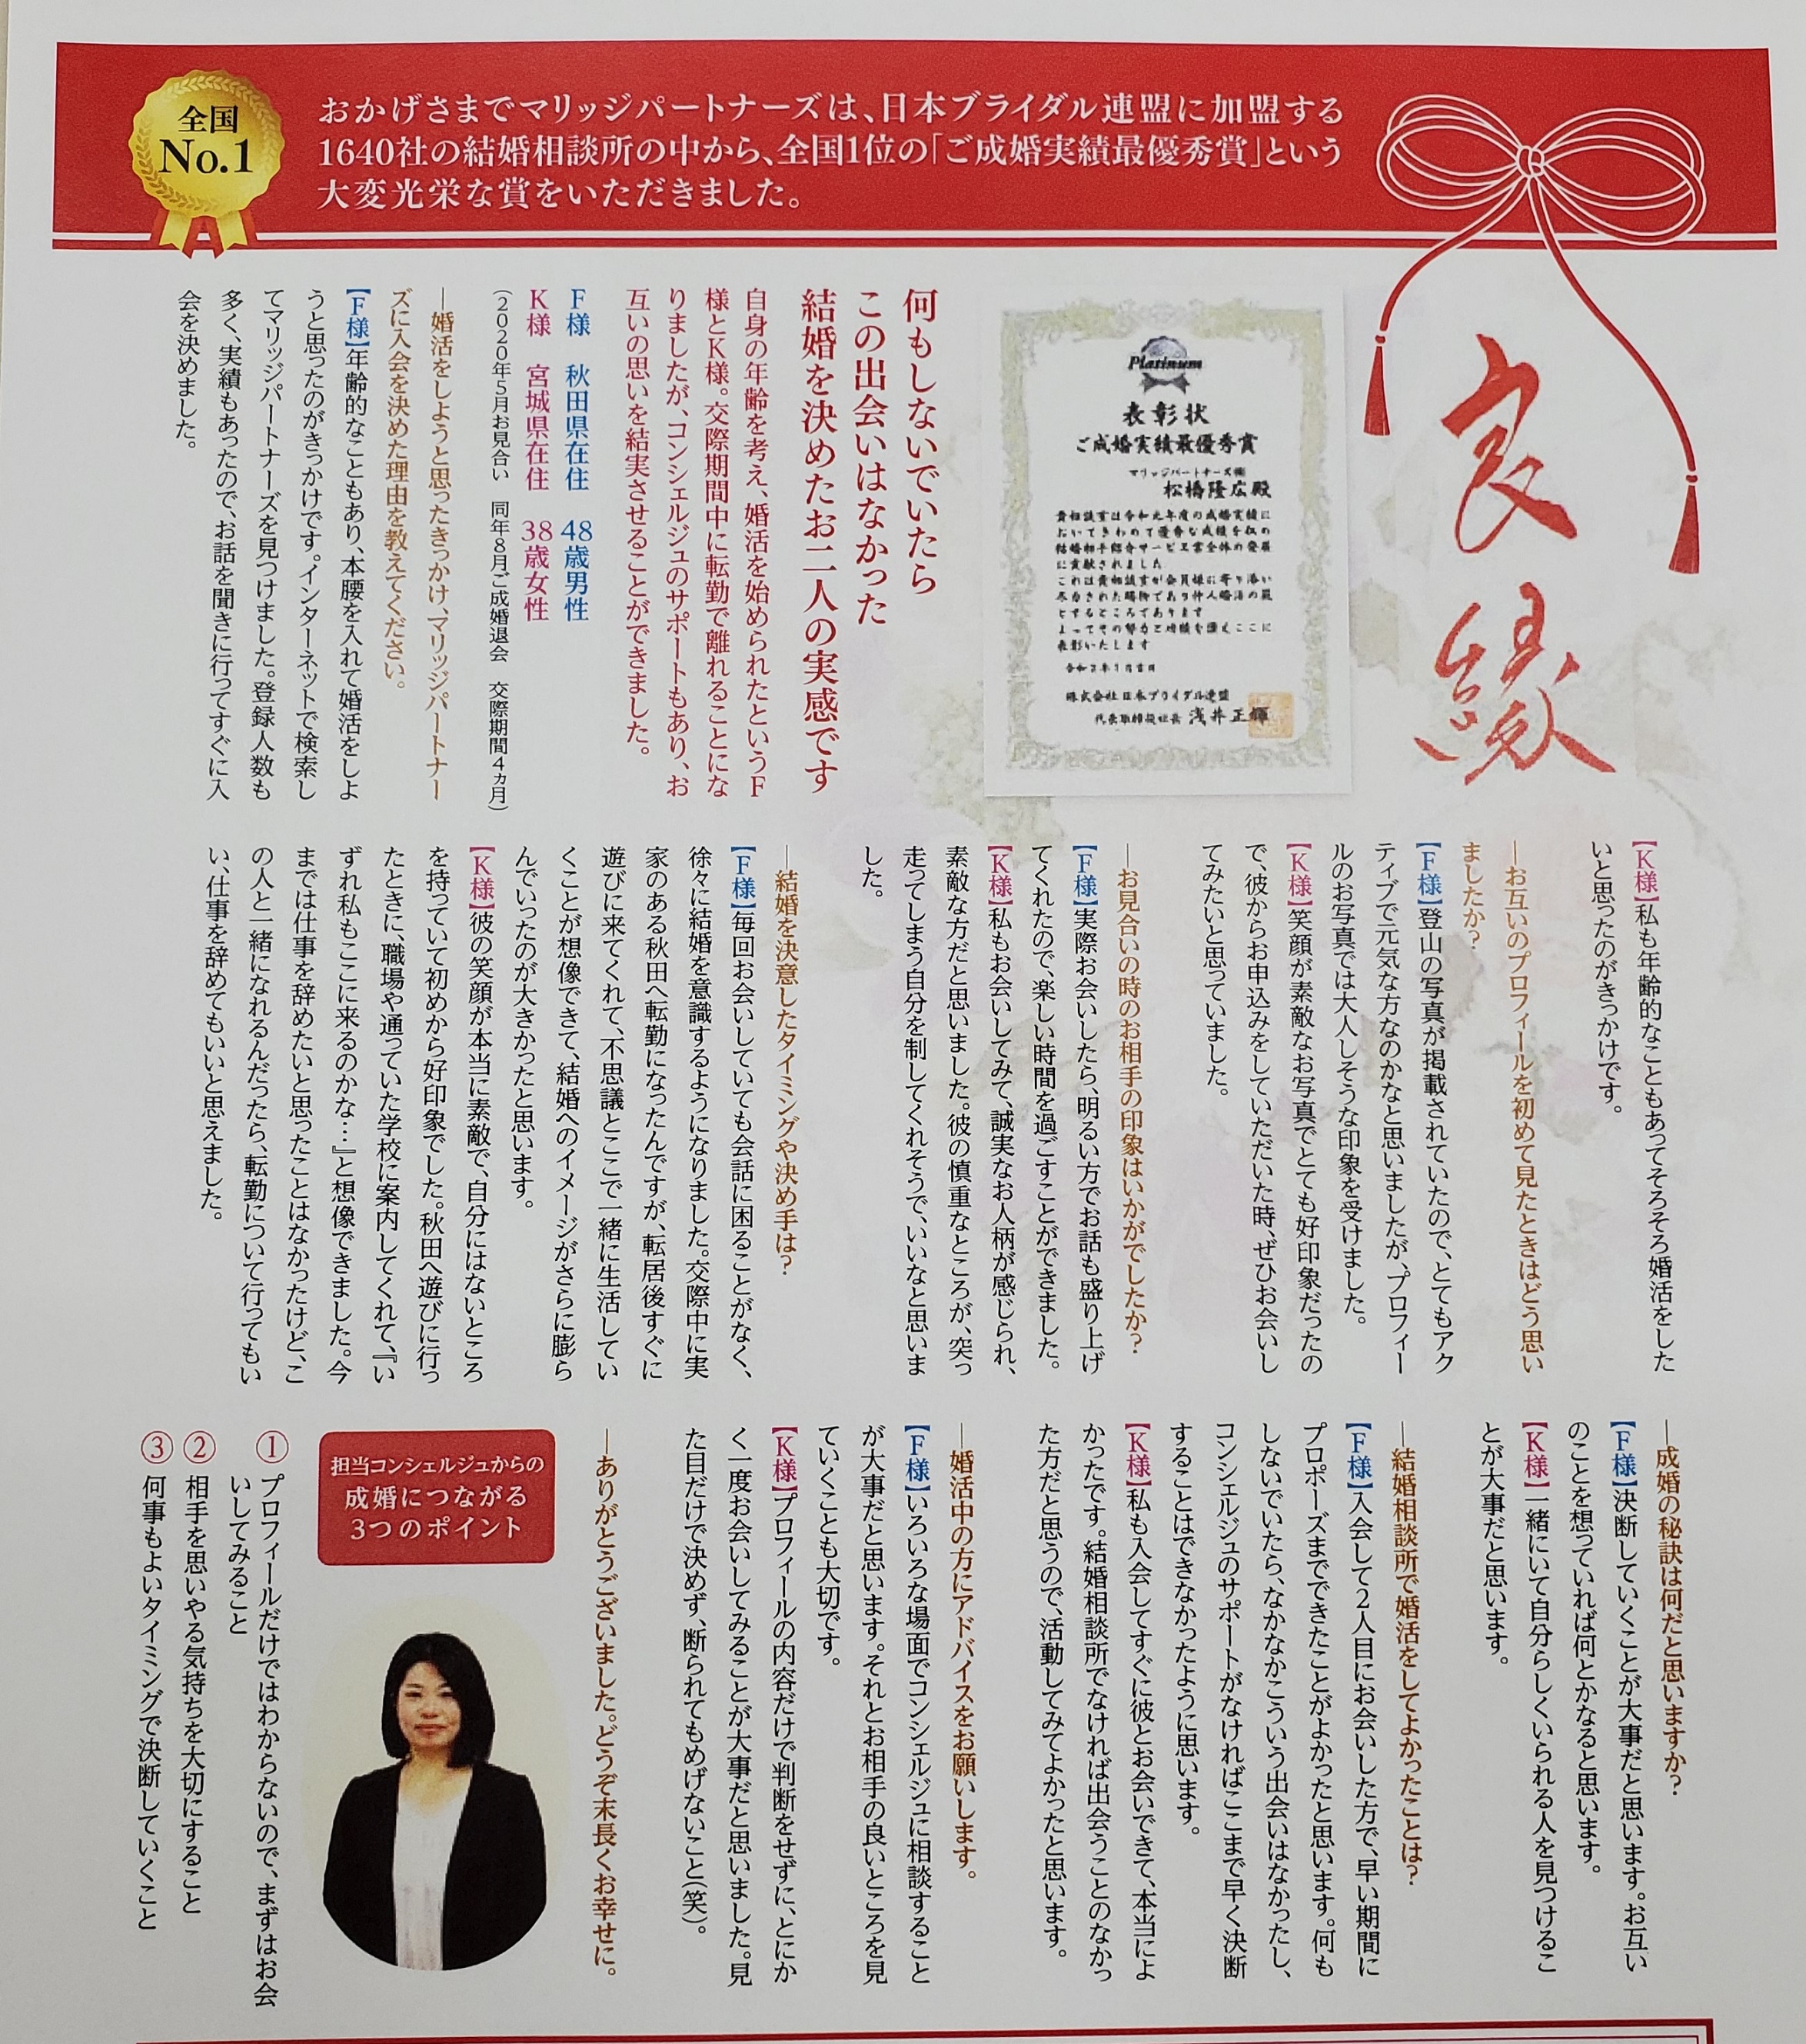 全国
No.1
おかげさまでマリッジパートナーズは、日本ブライダル連盟に加盟する
1640社の結婚相談所の中から、全国1位の「ご成婚実績最優秀賞」という
大変光栄な賞をいただきました。
良縁
Platinum
表彰状
ご成婚実績最優秀賞
マリッジパートナーズ㈱
松橋隆広殿
貴相談室は令和元年度の成婚実績に
おいてきわめて優秀な成績を収め
結婚相手紹介サービス業全体の発展
に貢献されました
これは貴相談室が会員様に寄り添い
尽力された賜物であり仲人婚活の範
とするところであります
よってその努力と功績を讃えここに
表彰いたします
令和2年1月吉日
株式会社日本ブライダル連盟
代表取締役社長 浅井正輝
何もしないでいたら
この出会いはなかった
結婚を決めたお二人の実感です
自身の年齢を考え、婚活を始められたというF
様とK様。交際期間中に転勤で離れることにな
りましたが、コンシェルジュのサポートもあり、お
互いの思いを結実させることができました。
F様 秋田県在住 48歳男性
K様 宮城県在住 38歳女性
(2020年5月お見合い 同年8月ご成婚退会 交際期間4ヵ月)
―婚活をしようと思ったきっかけ、マリッジパートナー
ズに入会を決めた理由を教えてください。
【F様】年齢的なこともあり、本腰を入れて婚活をしよ
うと思ったのがきっかけです。インターネットで検索し
てマリッジパートナーズを見つけました。登録人数も
多く、実績もあったので、お話を聞きに行ってすぐに入
会を決めました。
【K様】私も年齢的なこともあってそろそろ婚活をした
いと思ったのがきっかけです。
―お互いのプロフィールを初めて見たときはどう思い
ましたか?
【F様】登山の写真が掲載されていたので、とてもアク
ティブで元気な方なのかなと思いましたが、プロフィー
ルのお写真では大人しそうな印象を受けました。
【K様】笑顔が素敵なお写真でとても好印象だったの
で、彼からお申込みをしていただいた時、ぜひお会いし
てみたいと思っていました。
―お見合いの時のお相手の印象はいかがでしたか?
【F様】実際お会いしたら、明るい方でお話も盛り上げ
てくれたので、楽しい時間を過ごすことができました。
【K様】私もお会いしてみて、誠実なお人柄が感じられ、
素敵な方だと思いました。彼の慎重なところが、突っ
走ってしまう自分を制してくれそうで、いいなと思いま
した。
―結婚を決意したタイミングや決め手は?
【F様】毎回お会いしていても会話に困ることがなく、
徐々に結婚を意識するようになりました。交際中に実
家のある秋田へ転勤になったんですが、転居後すぐに
遊びに来てくれて、不思議とここで一緒に生活してい
くことが想像できて、結婚へのイメージがさらに膨ら
んでいったのが大きかったと思います。
【K様】彼の笑顔が本当に素敵で、自分にはないところ
を持っていて初めから好印象でした。秋田へ遊びに行っ
たときに、職場や通っていた学校に案内してくれて、『い
ずれ私もここに来るのかな…』と想像できました。今
までは仕事を辞めたいと思ったことはなかったけど、こ
の人と一緒になれるんだったら、転勤について行ってもい
い、仕事を辞めてもいいと思えました。
―成婚の秘訣は何だと思いますか?
【F様】決断していくことが大事だと思います。お互い
のことを想っていれば何とかなると思います。
【K様】一緒にいて自分らしくいられる人を見つけるこ
とが大事だと思います。
―結婚相談所で婚活をしてよかったことは?
【F様】入会して2人目にお会いした方で、早い期間に
プロポーズまでできたことがよかったと思います。何も
しないでいたら、なかなかこういう出会いはなかったし、
コンシェルジュのサポートがなければここまで早く決断
することはできなかったように思います。
【K様】私も入会してすぐに彼とお会いできて、本当によ
かったです。結婚相談所でなければ出会うことのなかっ
た方だと思うので、活動してみてよかったと思います。
―婚活中の方にアドバイスをお願いします。
【F様】いろいろな場面でコンシェルジュに相談すること
が大事だと思います。それとお相手の良いところを見
ていくことも大切です。
【K様】プロフィールの内容だけで判断をせずに、とにか
く一度お会いしてみることが大事だと思いました。見
た目だけで決めず、断られてもめげないこと(笑)。
―ありがとうございました。どうぞ末長くお幸せに。
担当コンシェルジュからの
成婚につながる
3つのポイント
① プロフィールだけではわからないので、まずはお会
いしてみること
② 相手を思いやる気持ちを大切にすること
③ 何事もよいタイミングで決断していくこと